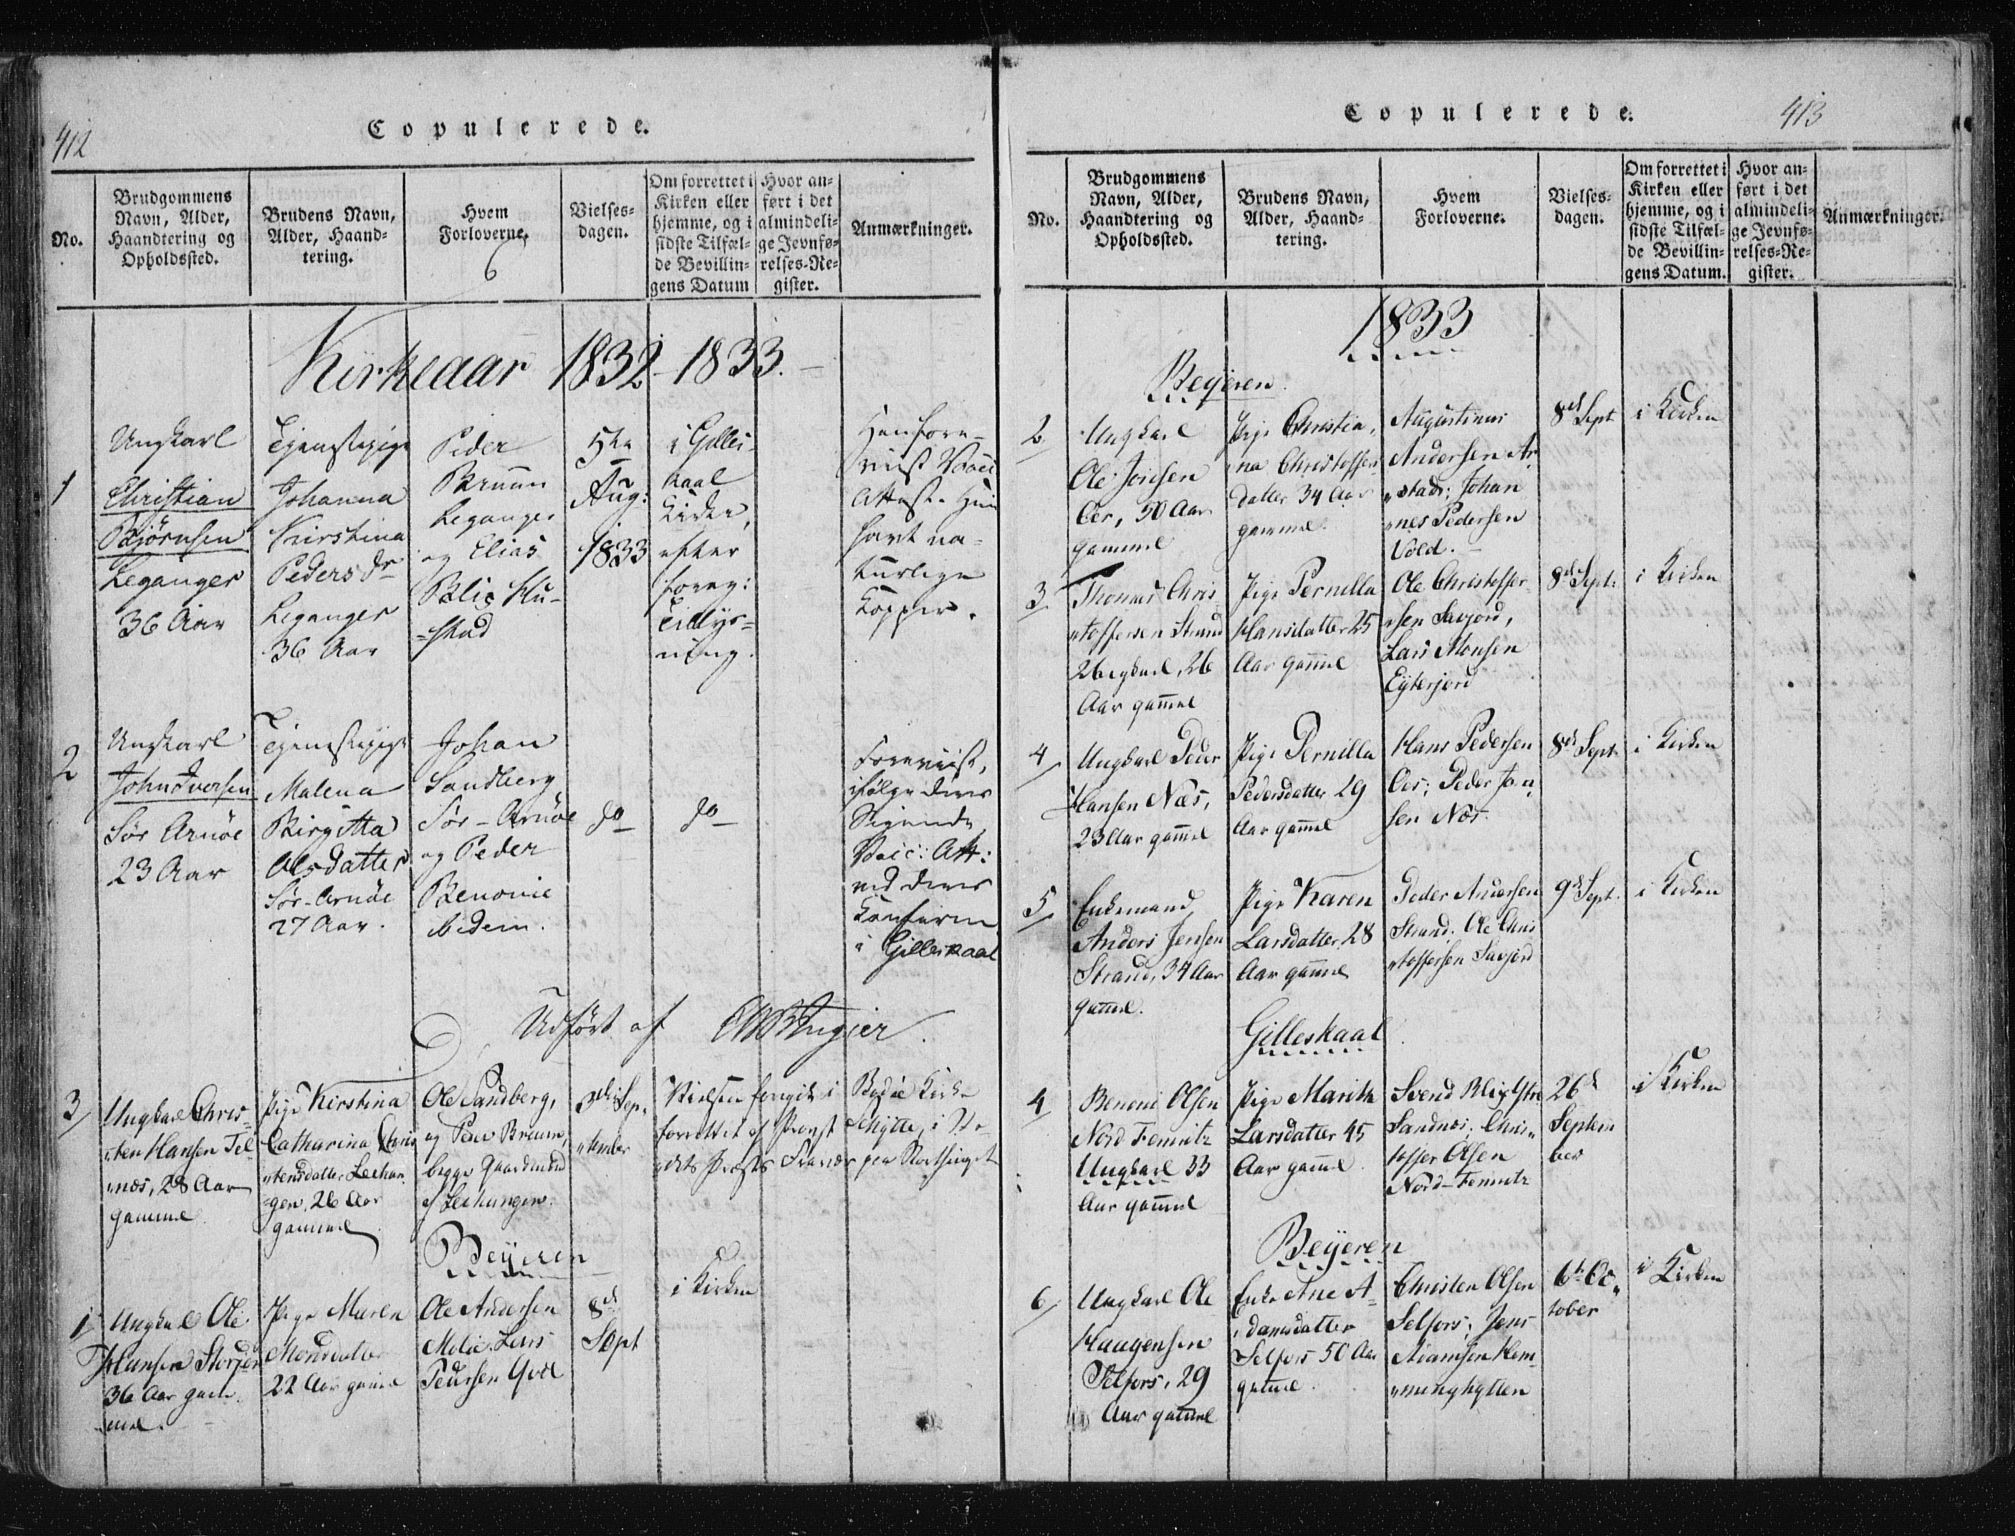 412
Copulerede.
No.
Brudgommens
Navn, Alder,
Haandtering og
Opholdssted.
Brudens Navn,
Alder, Haand-
tering.
Hvem
Forloverne.
6
Vielses-
dagen.
Om forrettet i
Kirken eller
hjemme, og i
sidste Tilfæl-
de Bevillin-
gens Datum
Hvor an-
ført i det
almindeli-
ge Jevnfø-
relses-Re-
gister.
Anmærkninger.
Kirkeaar 1832-1833.
1
Ungkarl
Christian
Bjørnsen
Leganger
36 Aar
Tjenestepige
Johanna
Kirstina
Peders Dr
Leganger
36 Aar
Peder
Bruun
Leganger
og Elias
Blix Ku-
stad
5te
Aug:
1833
i Gilles-
kaal
Kirke,
efter
foreg:
Tillys-
ning.
Attest. Hun
havt na-
turlige
Kopper.
2
Ungkarl
John Iversen
Sør Arnøe
23 Aar
Tjenestepige
Malena
Birgitta
Olsdatter
Sør-Arnøe
27 Aar.
Johan
Sandberg
Sør-Arnøe
og Peder
Benonie
ibidem.
do
do
Foreviist,
ifølge deres
Sigende,
Vacc: Att:
ved deres
Confirm
i Gilleskaal
Udført af
3
Ungkarl Chris-
"ten Hansen Sel-
"næs, 28 Aar
gammel
Pige Kirstina
Catharina Chris
"tensdatter Leehan-
"gen, 26 Aar
gammel
Ole Sandberg,
og Peder Bruun,
begge Gaardmænd
af Leehangen.
3die Sep-
"tember
Vielsen foregik i Bodøe Kirke
forrettet af Provst Schytte, i
Præsts Fravær paa Storthinget
Beyeren
1
Ungkarl Ole
Hansen Storjor
36 Aar gam-
mel.
Pige Maren
Monsdatter
22 Aar gammel
Ole Andersen
Lars
Pedersen
8de
Sept
i Kirken
Copulerede.
413
No.
Brudgommens
Navn, Alder,
Haandtering og
Opholdssted.
Brudens Navn,
Alder, Haand-
tering.
Hvem
Forloverne.
Vielses-
dagen.
Om forrettet i
Kirken eller
hjemme, og i
sidste Tilfæl-
de Bevillin-
gens Datum.
Hvor an-
ført i det
almindeli-
ge Jevnfø-
relses-Re-
gister.
Anmærkninger.
1833
Beyeren.
2
Ungkarl
Ole Jonsen
Oes, 50 Aar
gammel
Pige Christia-
"na Christoffers
datter 34 Aar
gammel.
Augustinus
Andersen Ar-
"stad; Johan
"nes Pedersen
Vold.
8de Sept
i Kirken
3
Thomas Chris
"toffersen Strand
Ungkarl, 26
Aar gammel
Pige Pernilla
Hansdatter 25
Aar gammel
Ole Christoffer-
"sen Savjord,
Lars Monsen
Eyterjord
8de Sept:
i Kirken
4
Ungkarl Peder
Hansen Næs,
23 Aar gammel
Pige Pernilla
Pedersdatter 29
Aar gammel
Hans Pedersen
Oes; Peder Jon-
sen Næs.
8de Sept:
i Kirken
5
Enkemand
Anders Jensen
Strand, 34 Aar
gammel.
Pige Karen
Larsdatter, 28
Aar gammel
Peder Andersen
Strand; Ole Chris
"toffersen Savjord
9de Sept.
i Kirken
Gilleskaal
4
Benoni Olsen
Nord Femritz
Ungkarl 33
Aar gammel
Pige Marith
Larsdatter 45
Aar gammel.
Svend Blix Ytre
Sandnæs; Chris-
toffer Olsen
Nord-Femritz
26de
Septem
ber
i Kirken
Beyeren
6
Ungkarl Ole
Haagensen
Selfors, 29
Aar gammel
Enke Ane A-
"damsdatter
Selfors 50 Aar
gammel.
Christen Olsen
Selfors; Jens
Adamsen Hem-
"minghytten
6te Oc-
tober
i Kirken